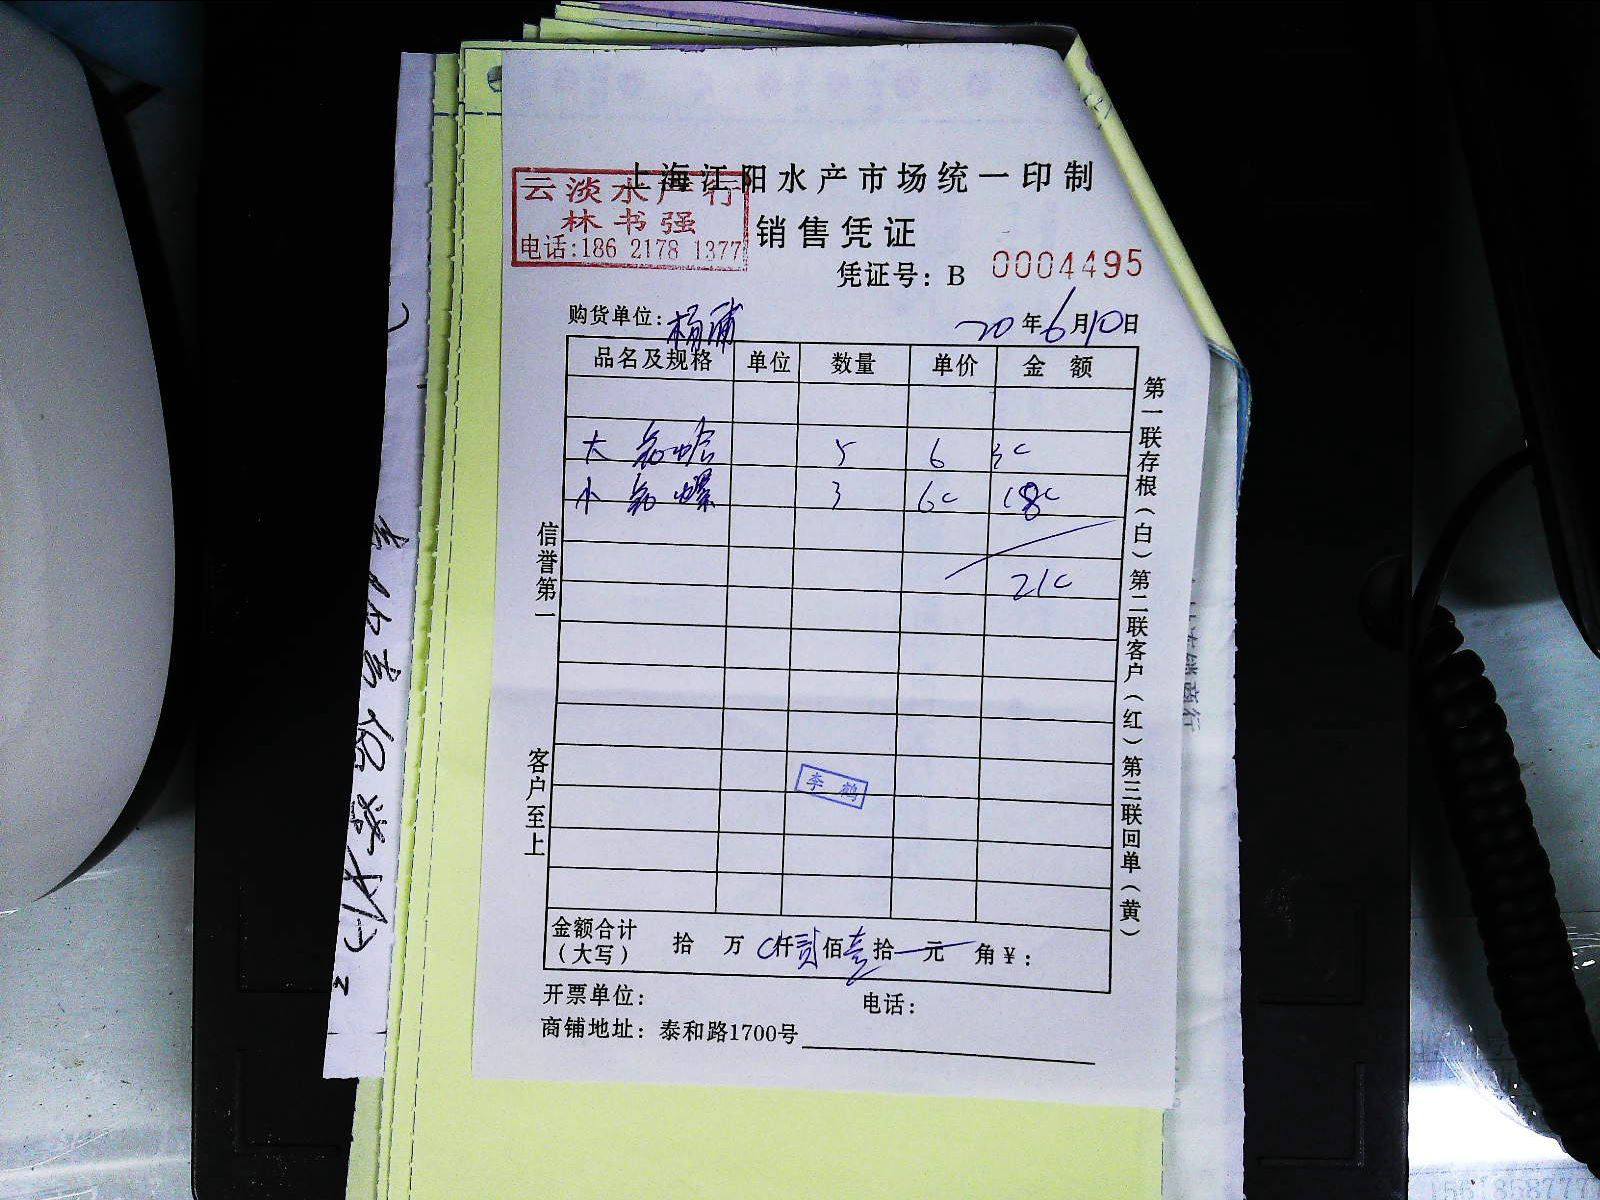 上海江阳水产市场统一印制
云淡水产行
林书强
电话:186 2178 1377
销售凭证
凭证号: B 0004495
购货单位: 杨浦
20年6月10日
品名及规格 单位 数量 单价 金额
大 5 6 30
小 3 60 180
210
信誉第一
客户至上
李鹤
第一联存根(白)第二联客户(红)第三联回单(黄)
金额合计(大写) 拾 万 0仟贰佰壹拾 元 角¥:
开票单位: 电话:
商铺地址: 泰和路1700号